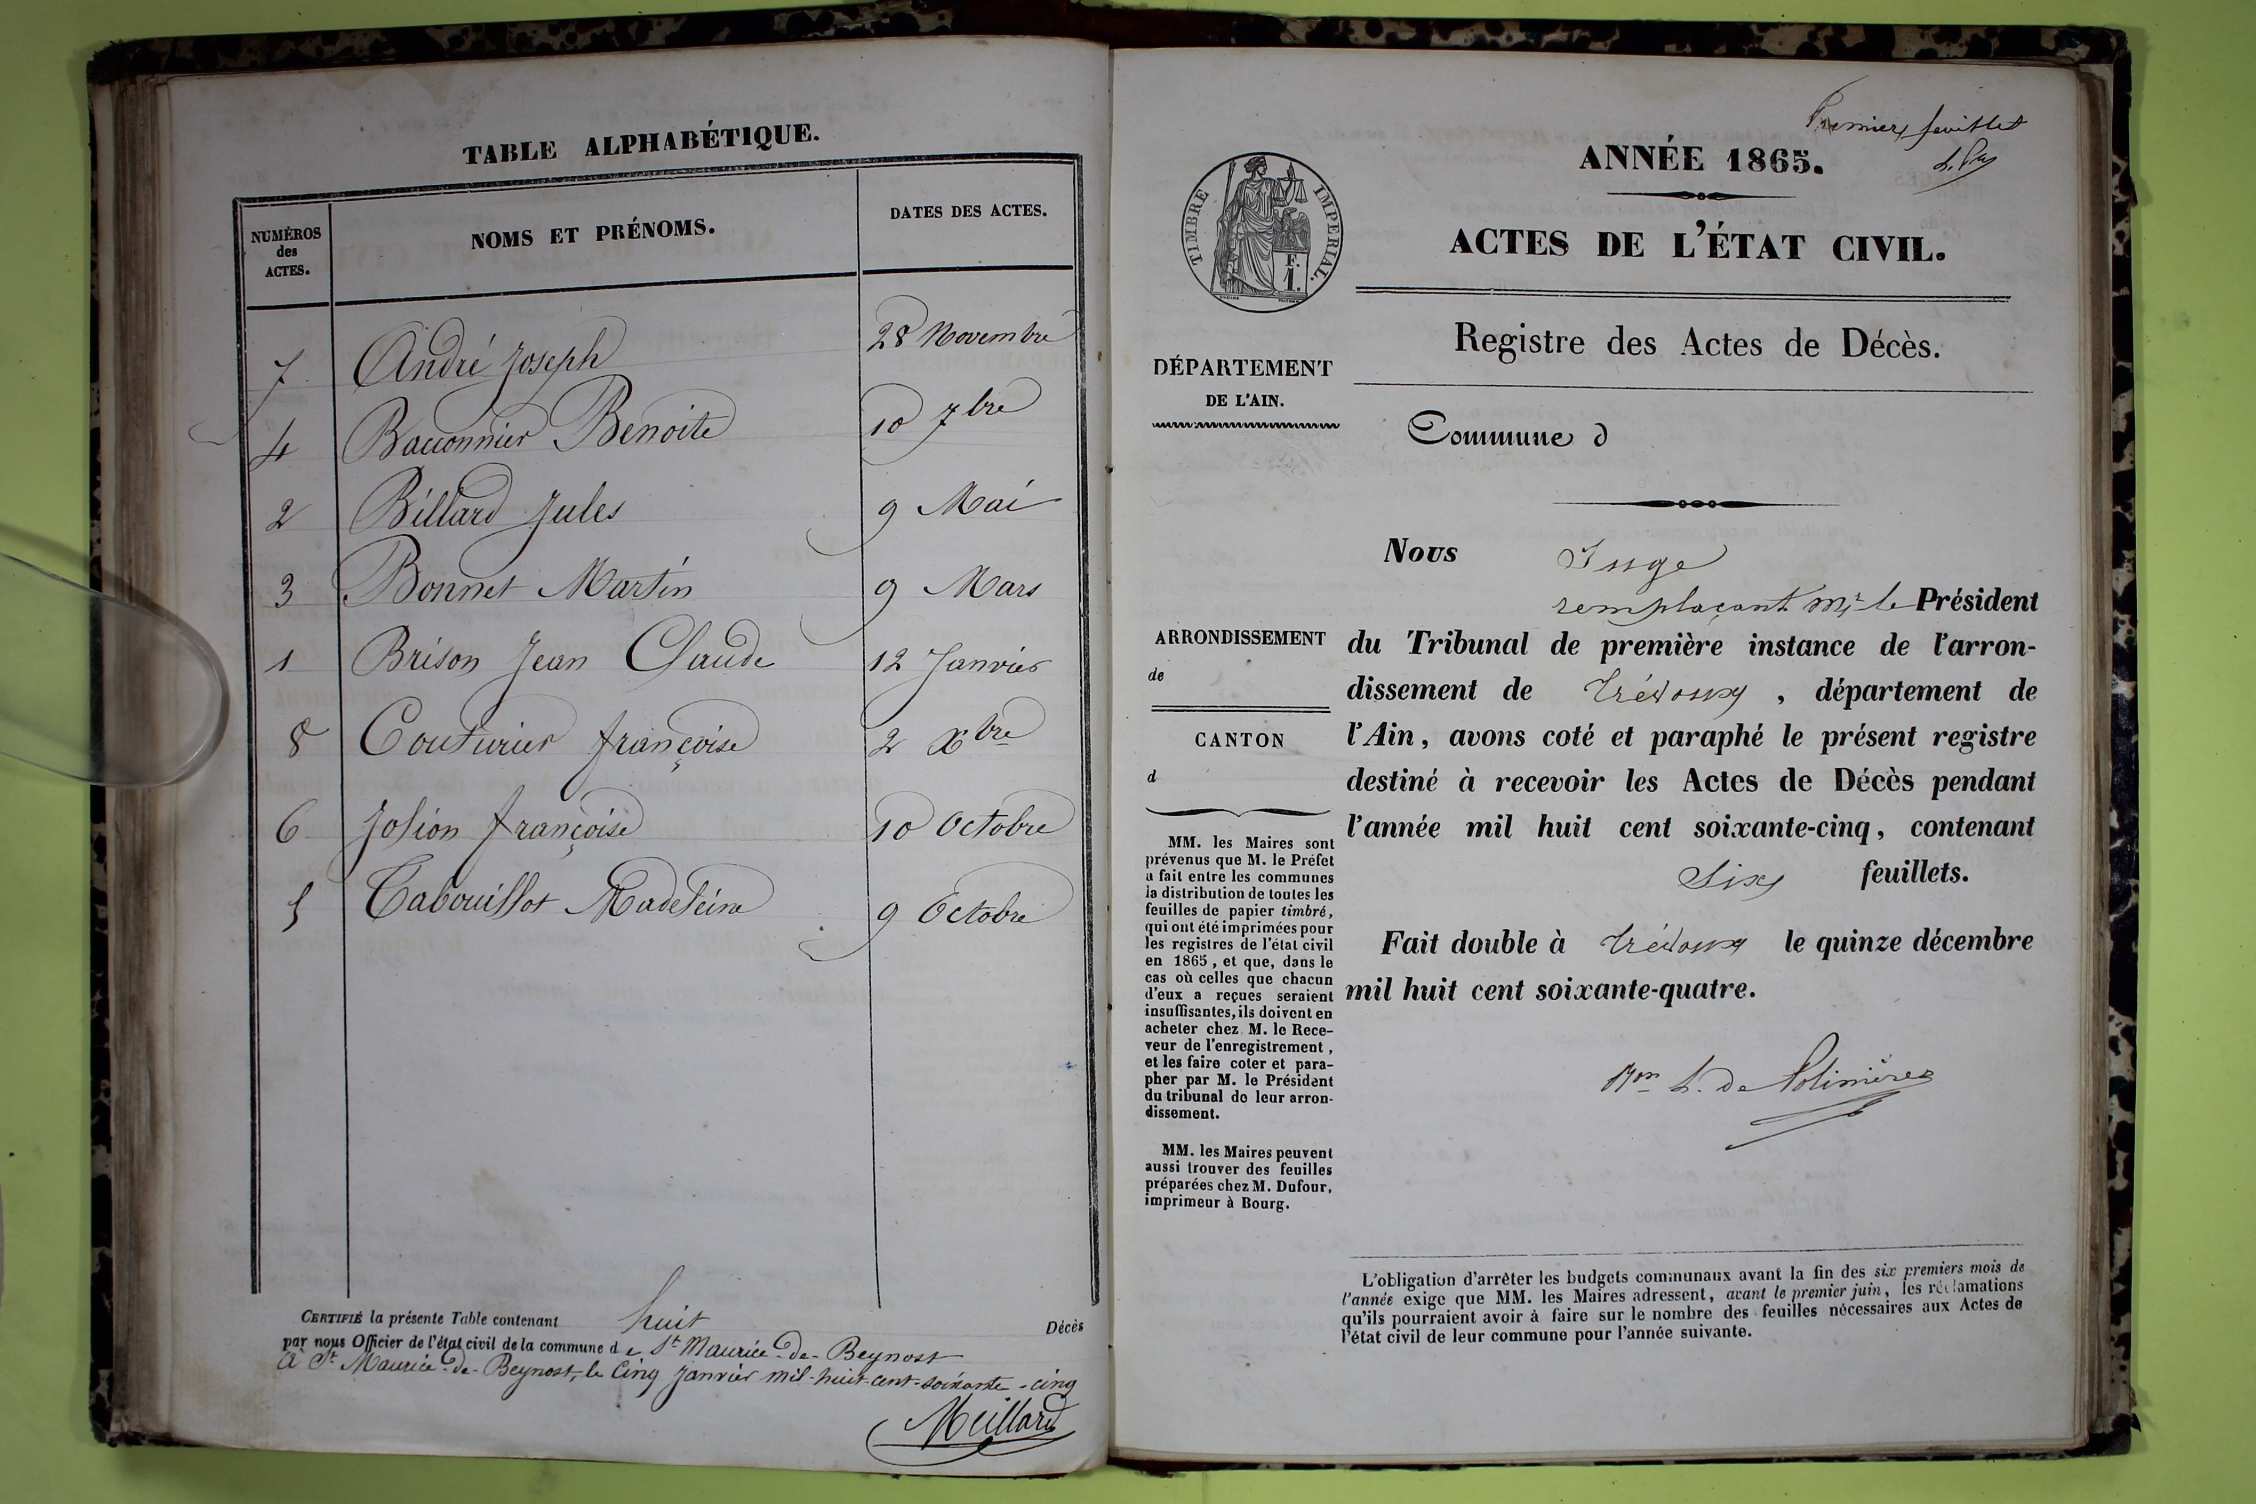 TABLE ALPHABÉTIQUE.
NUMÉROS
des
ACTES.
NOMS ET PRÉNOMS.
DATES DES ACTES.
7 André Joseph 28 Novembre
4 Bacconnier Benoite 10 7bre
2 Billard Jules 9 Mai
3 Bonnet Martin 9 Mars
1 Brison Jean Claude 12 Janvier
8 Couturier françoise 2 Xbre
6 Jolion françoise 10 Octobre
5 Tabouillot Madeleine 9 Octobre
CERTIFIÉ la présente Table contenant huit Décès
par nous Officier de l'état civil de la commune de St Maurice-de-Beynost
A St Maurice-de-Beynost, le Cinq Janvier mil-huit-cent-soixante-cinq
Meillard
Premier feuillet
ANNÉE 1865.
TIMBRE IMPÉRIAL.
F.
1.
ACTES DE L'ÉTAT CIVIL.
Registre des Actes de Décès.
DÉPARTEMENT
DE L'AIN.
Commune d
ARRONDISSEMENT
de
CANTON
d
MM. les Maires sont
prévenus que M. le Préfet
a fait entre les communes
la distribution de toutes les
feuilles de papier timbré,
qui ont été imprimées pour
les registres de l'état civil
en 1865, et que, dans le
cas où celles que chacun
d'eux a reçues seraient
insuffisantes, ils doivent en
acheter chez M. le Rece-
veur de l'enregistrement,
et les faire coter et para-
pher par M. le Président
du tribunal de leur arron-
dissement.
MM. les Maires peuvent
aussi trouver des feuilles
préparées chez M. Dufour,
imprimeur à Bourg.
Nous Juge
remplaçant Mr le Président
du Tribunal de première instance de l'arron-
dissement de Trévoux, département de
l'Ain, avons coté et paraphé le présent registre
destiné à recevoir les Actes de Décès pendant
l'année mil huit cent soixante-cinq, contenant
Six feuillets.
Fait double à Trévoux le quinze décembre
mil huit cent soixante-quatre.
Bon L. de Polinière
L'obligation d'arrêter les budgets communaux avant la fin des six premiers mois de
l'année exige que MM. les Maires adressent, avant le premier juin, les réclamations
qu'ils pourraient avoir à faire sur le nombre des feuilles nécessaires aux Actes de
l'état civil de leur commune pour l'année suivante.